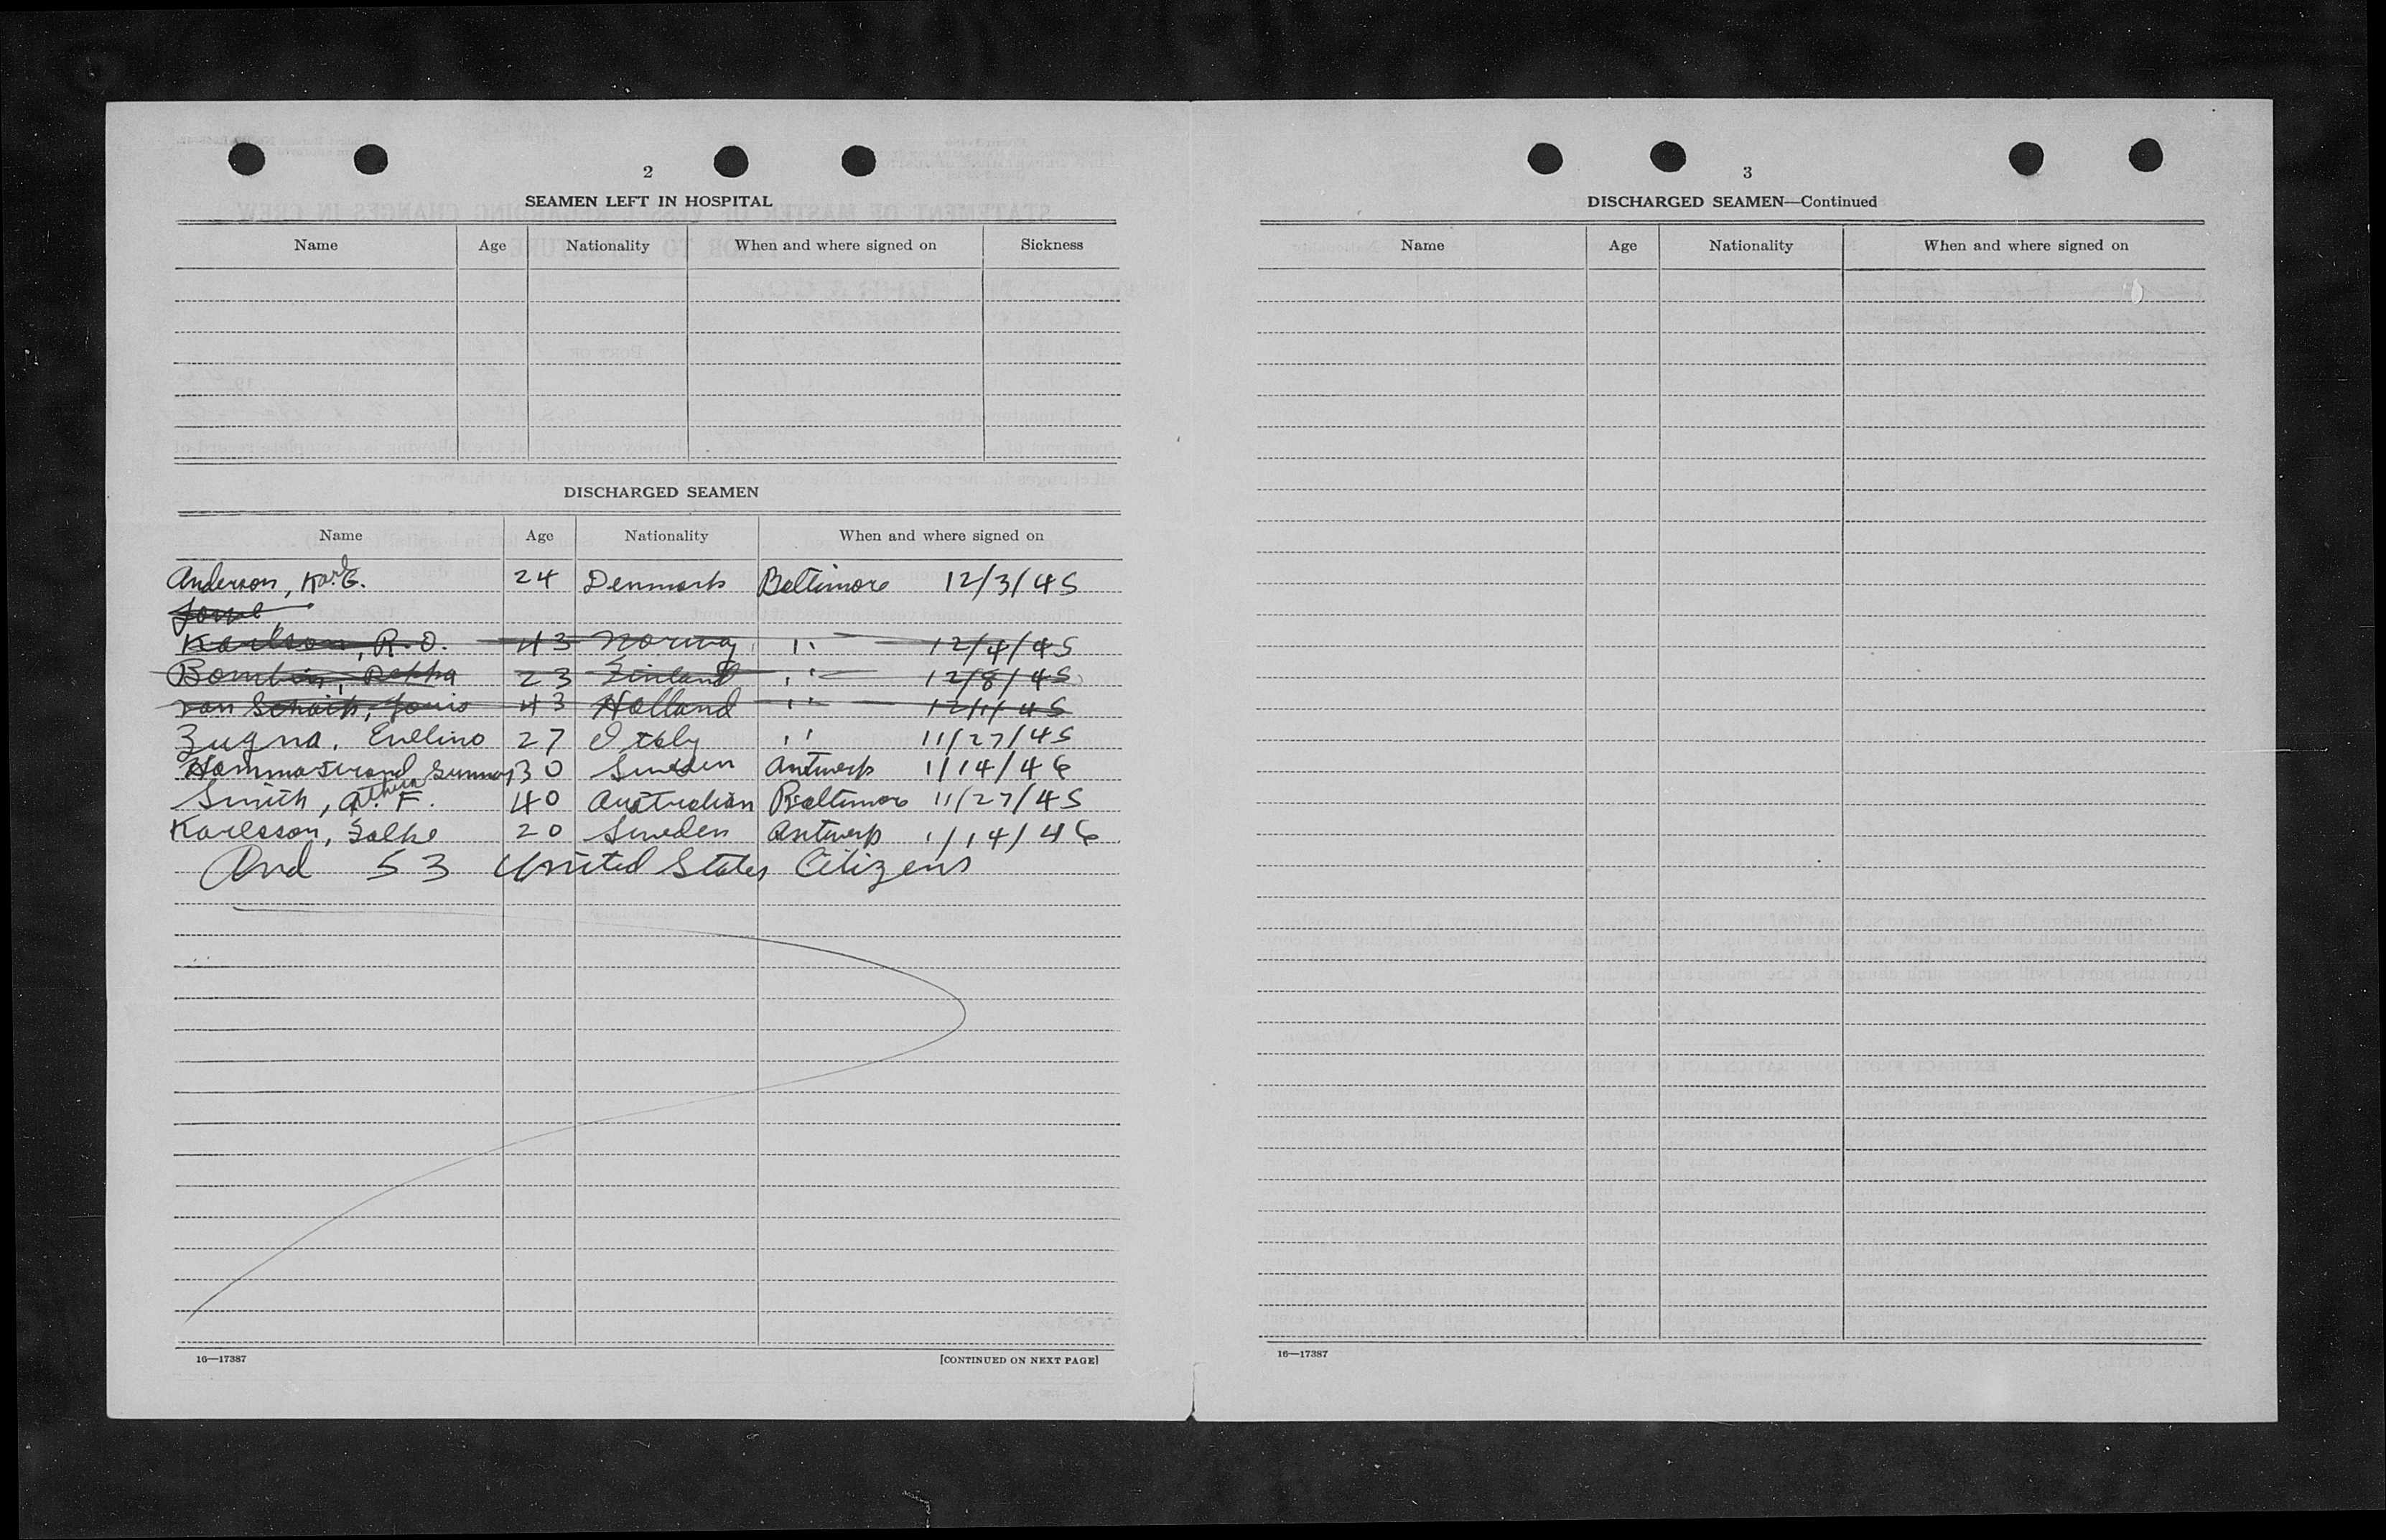 2
SEAMEN LEFT IN HOSPITAL
Name Age Nationality When and where signed on Sickness
DISCHARGED SEAMEN
Name Age Nationality When and where signed on
Anderson, Karl G. 24 Denmark Baltimore 12/3/45
Karlson, R.O. 43 Norway " 12/4/45
23 Finland " 12/8/45
van Schaik, Louis 43 Holland " 12/1/45
Zugna, Evelino 27 Italy " 11/27/45
Hammarstrand Gunnar 30 Sweden Antwerp 1/14/46
Smith, Arthur F. 40 Australian Baltimore 11/27/45
Karlsson, Folke 20 Sweden Antwerp 1/14/46
And 53 United States Citizens
16—17387 [CONTINUED ON NEXT PAGE]
3
DISCHARGED SEAMEN—Continued
Name Age Nationality When and where signed on
16—17387